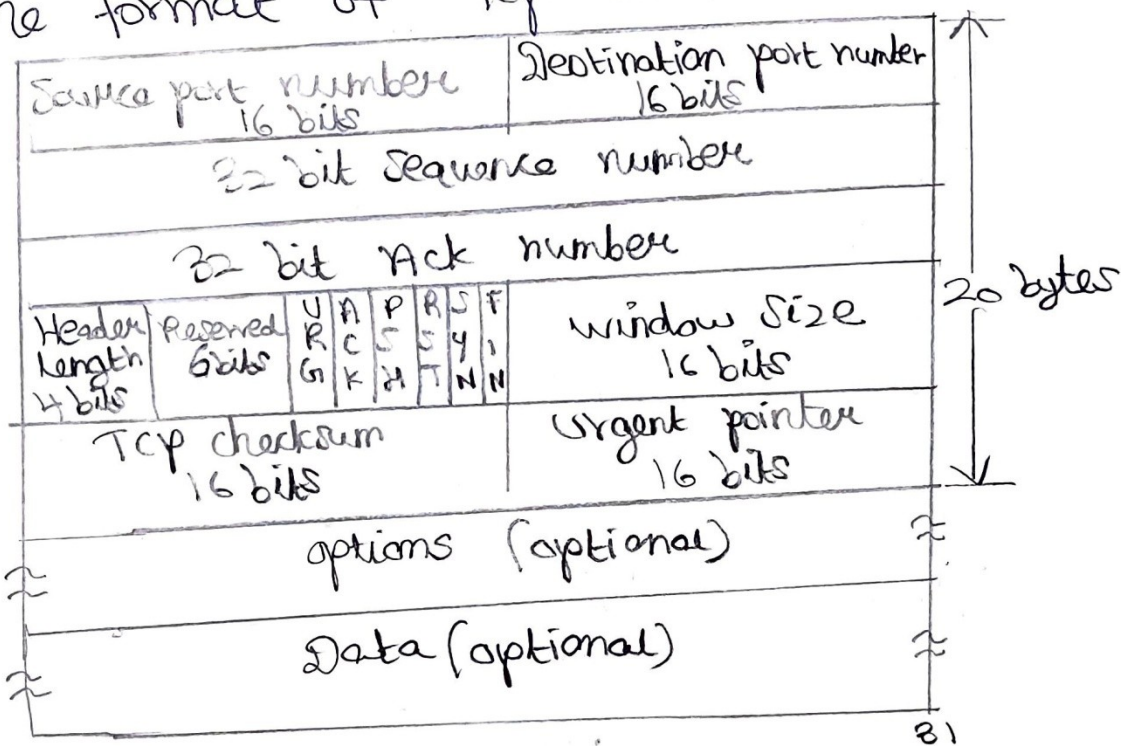 format of
Source port number
16 bits
Destination port number
16 bits
32 bit Sequence number
32 bit Ack number
Header Length 4 bits
Reserved 6 bits
URG
ACK
PSH
RST
SYN
FIN
window Size
16 bits
20 bytes
TCP checksum
16 bits
Urgent pointer
16 bits
options (optional)
Data (optional)
31